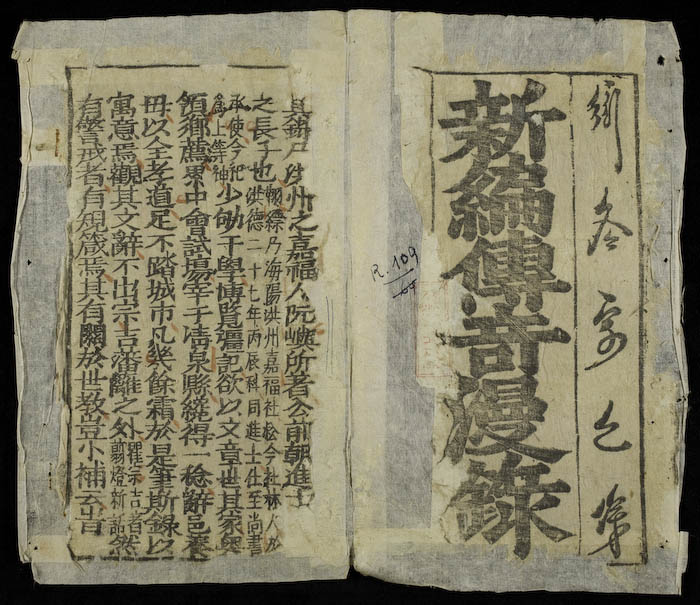 新編傳奇漫錄
R.109
洪州之嘉福人阮嶼所著公前朝進士
之長子也翔縹乃海陽洪州嘉福社松今杜林人
洪德二十七年丙辰科同進士仕至尚書
承使今祀
為上等神
少劬于學博覽彊記欲以文章世其家粵
領鄉薦累中會試場宰于清泉縣纔得一稔辭邑養
母以全孝道足不踏城市凡幾餘霜於是筆斯錄以
寓意焉觀其文辭不出宗吉藩籬之外瞿宗吉著
翦燈新話然
有警戒者有規箴焉其有關於世教豈小補云旹